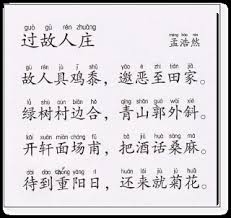 guò gù rén zhuāng
过故人庄
mèng hào rán
孟浩然
gù rén jù jī shǔ yāo è zhì tián jiā
故人具鸡黍，邀恶至田家。
lǜ shù cūn biān hé qīng shān guō wài xié
绿树村边合，青山郭外斜。
kāi xuān miàn cháng pǔ bǎ jiǔ huà sāng má
开轩面场甫，把酒话桑麻。
dài dào chóng yáng rì hái lái jiù jú huā
待到重阳日，还来就菊花。